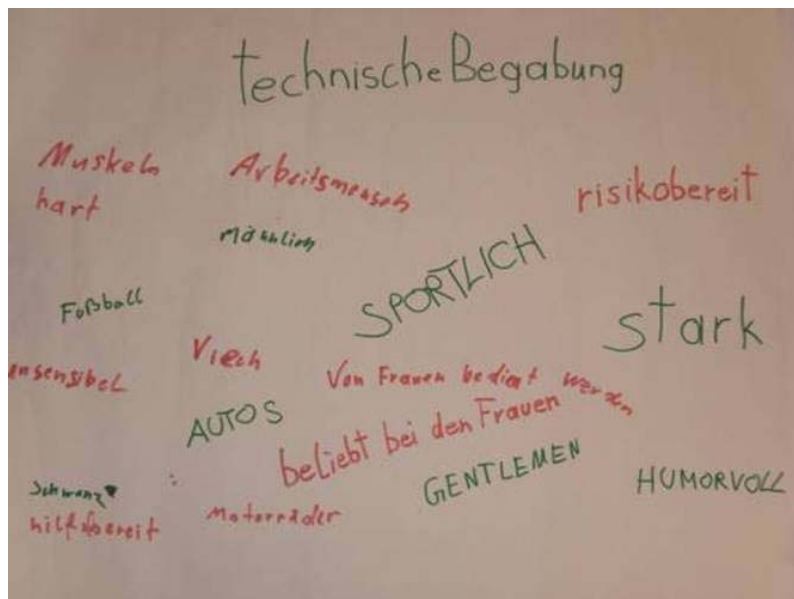 technische Begabung
Muskeln
Arbeitsmensch
risikobereit
hart
Männlich
SPORTLICH
Fußball
stark
Viech
unsensibel
Von Frauen bedient werden
AUTOS
beliebt bei den Frauen
GENTLEMEN
HUMORVOLL
Schwanz
hilfsbereit
Motorräder